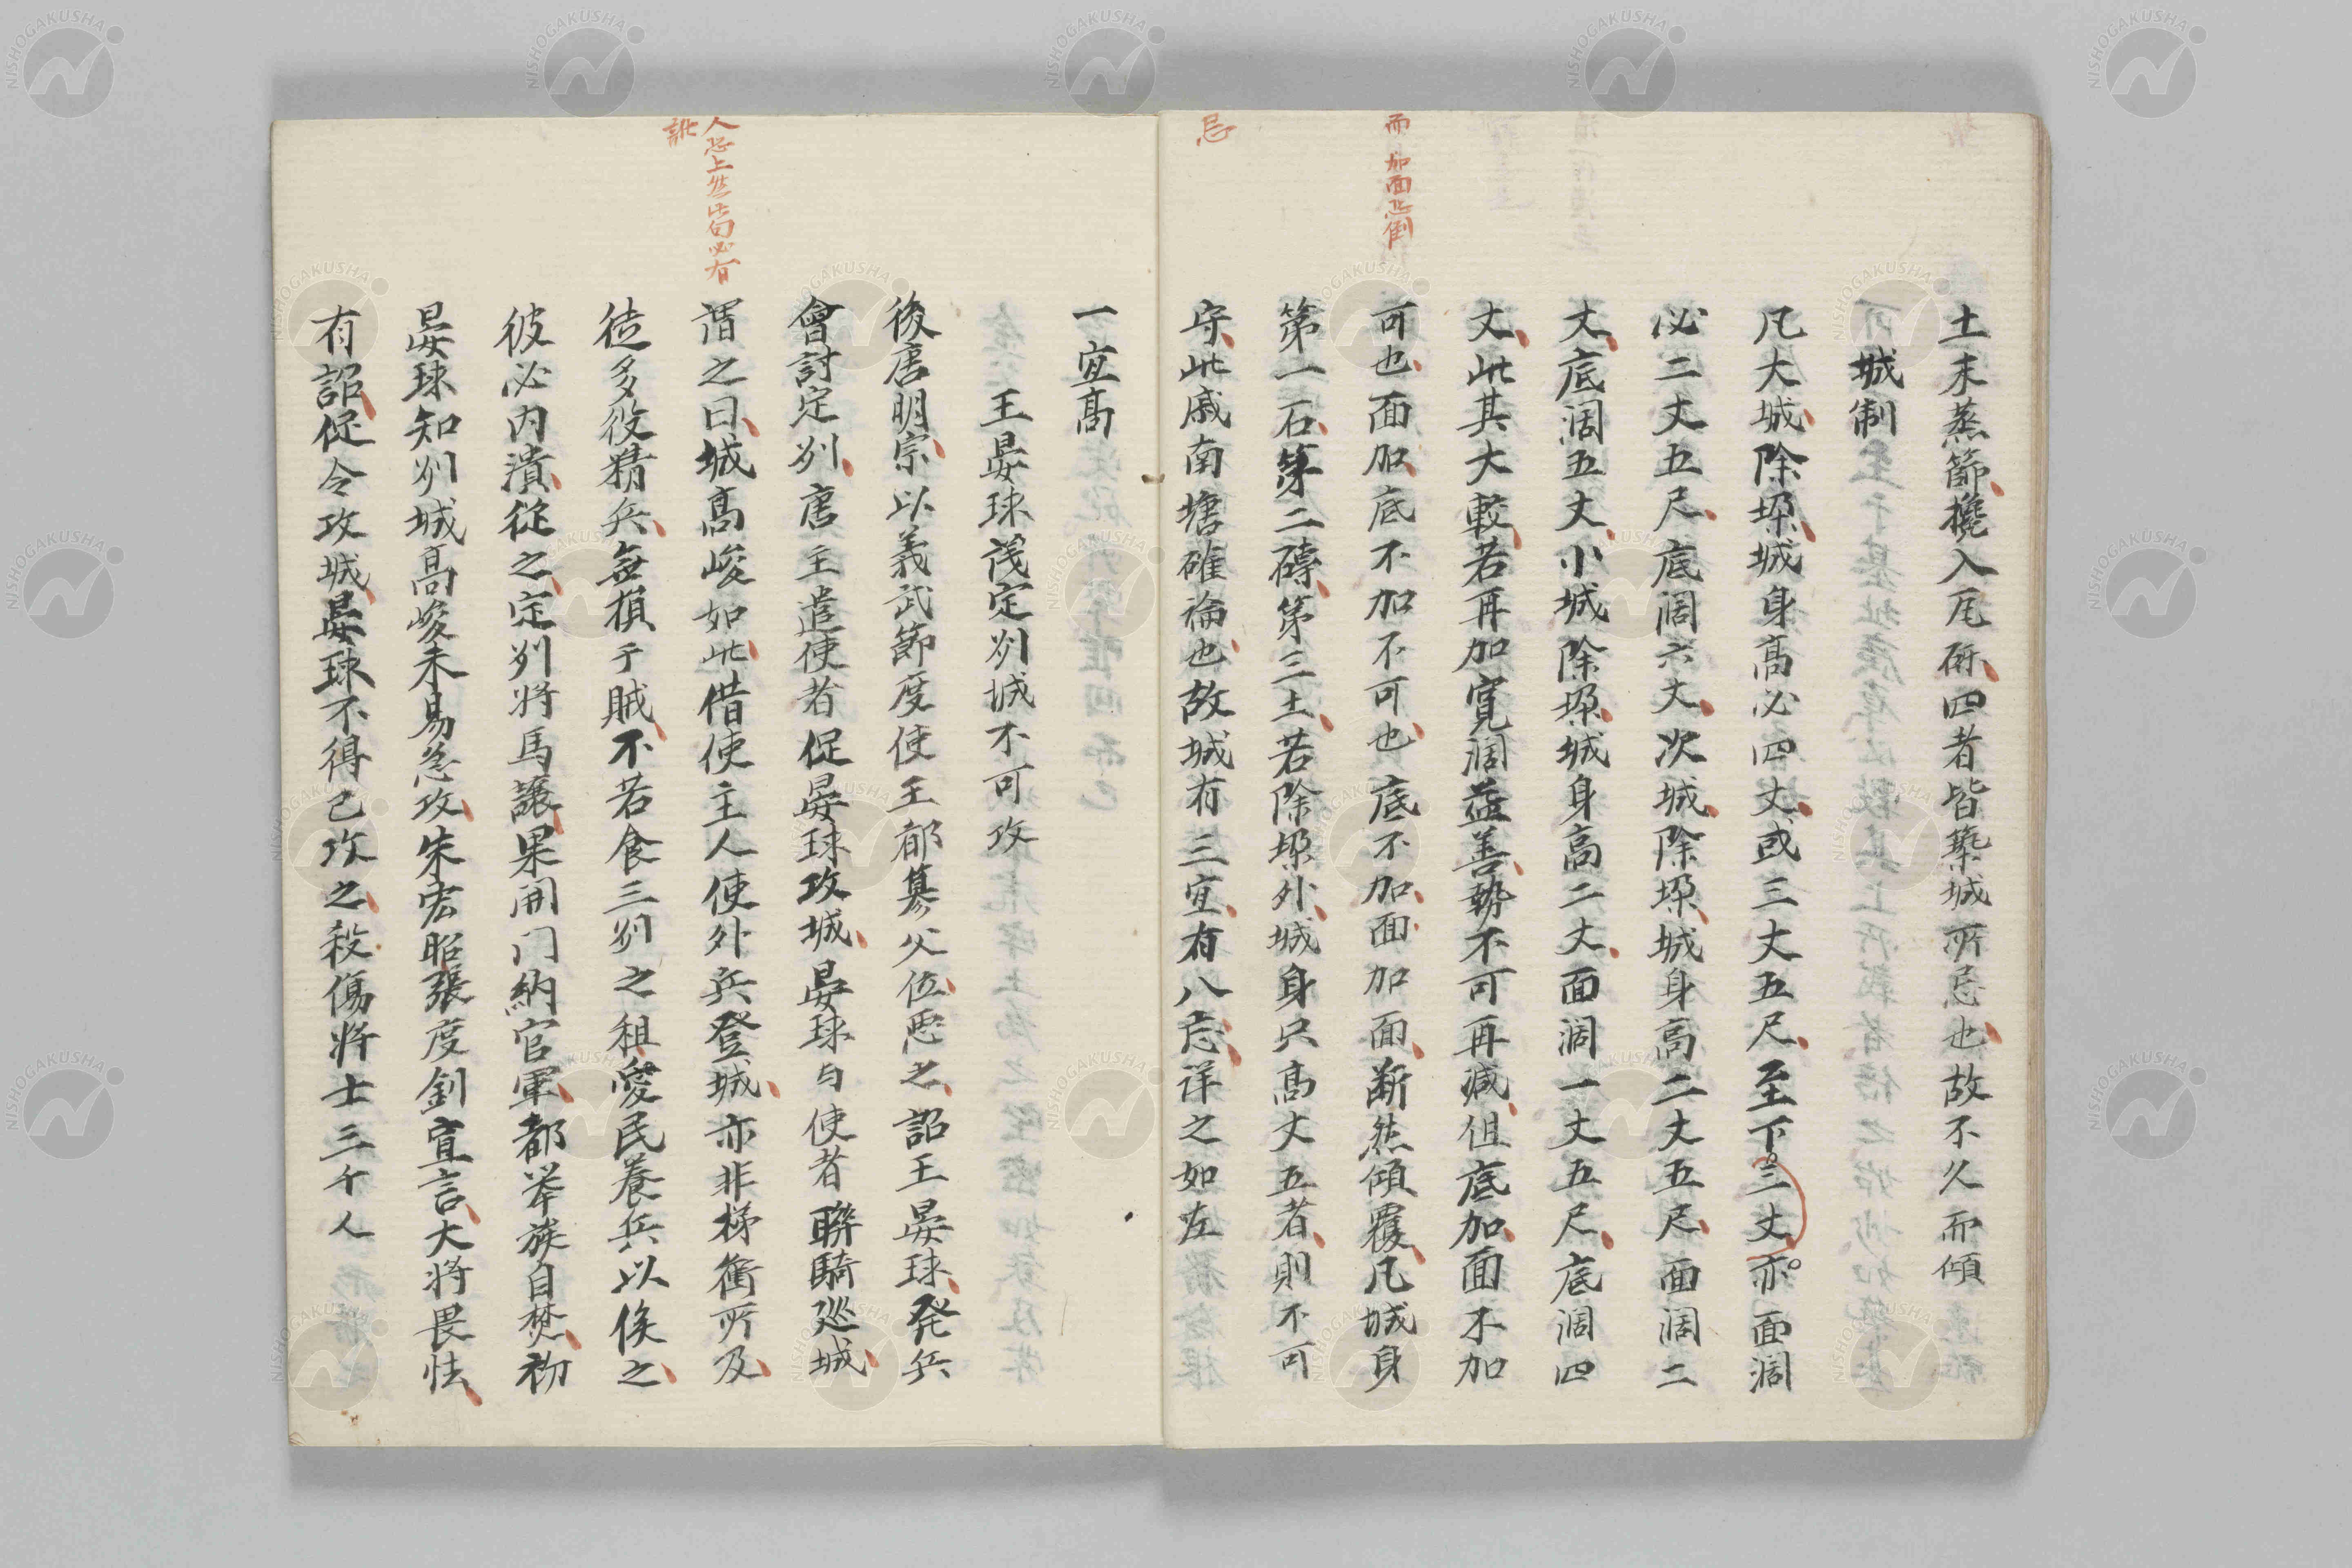 土末蒸篩攙入瓦研四者皆築城所忌也故不久而傾
城制
凡大城除垛城身高必四丈或三丈五尺至下三丈亦面闊
必二丈五尺底闊六丈次城除垛城身高二丈五尺面闊二
丈底闊五丈小城除垛城身高二丈面闊一丈五尺底闊四
丈此其大較若再加寛闊益善勢不可再减但底加面不加
可也面加底不加不可也底不加面加面断然傾覆凡城身
第一石第二磚第三土若除垛外城身只高丈五者則不可
守此戚南塘確論也故城有三宜有八忌詳之如左
而 加面恐倒
忌
一宜高
王晏球謂定州城不可攻
後唐明宗以義武節度使王都篡父位惡之詔王晏球発兵
會討定州唐主遣使者促晏球攻城晏球与使者聯騎廵城
謂之曰城高峻如此借使主人使外兵登城亦非梯衝所及
徒多役精兵無損于賊不若食三州之租愛民養兵以俟之
彼必内潰従之定州将馬讓果開门納官軍都挙族自焚初
晏球知州城高峻未易急攻朱宏昭張虔釗宣言大将畏怯
有詔促令攻城晏球不得已攻之殺傷将士三千人
人恐上然此句必有
訛
NISHOGAKUSHA